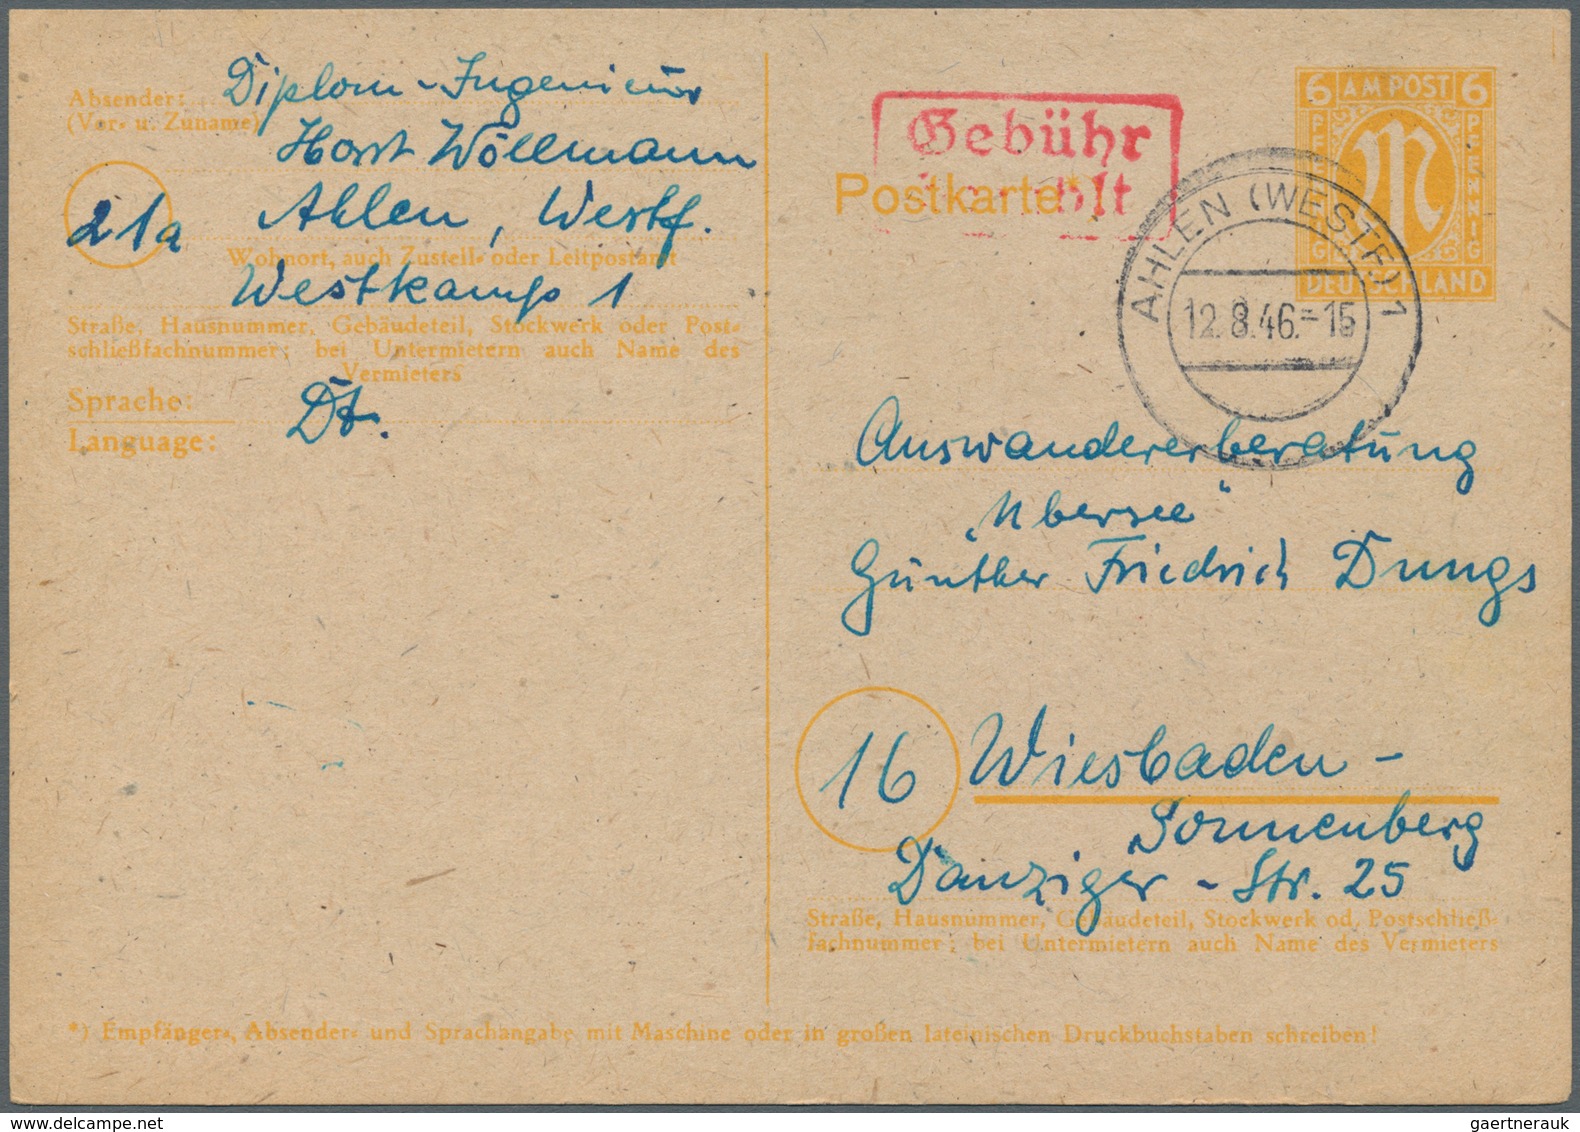 Absender:
(Vor- u. Zuname)
Diplom-Ingenieur
Horst Wöllmann
21a Ahlen, Westf.
Wohnort, auch Zustell- oder Leitpostamt
Westkamp 1
Straße, Hausnummer, Gebäudeteil, Stockwerk oder Post-
schließfachnummer; bei Untermietern auch Name des
Vermieters
Sprache:
Language:
Dt.
Gebühr
Postkarte*)
6 AM POST 6
PFENNIG
PFENNIG
M
DEUTSCHLAND
AHLEN (WESTF.) 1
12.8.46.-15
Auswandererberatung
„Übersee“
Günther Friedrich Dungs
16 Wiesbaden-
Sonnenberg
Danziger-Str. 25
Straße, Hausnummer, Gebäudeteil, Stockwerk od. Postschließ-
fachnummer; bei Untermietern auch Name des Vermieters
*) Empfänger-, Absender- und Sprachangabe mit Maschine oder in großen lateinischen Druckbuchstaben schreiben!
gaertnerauk